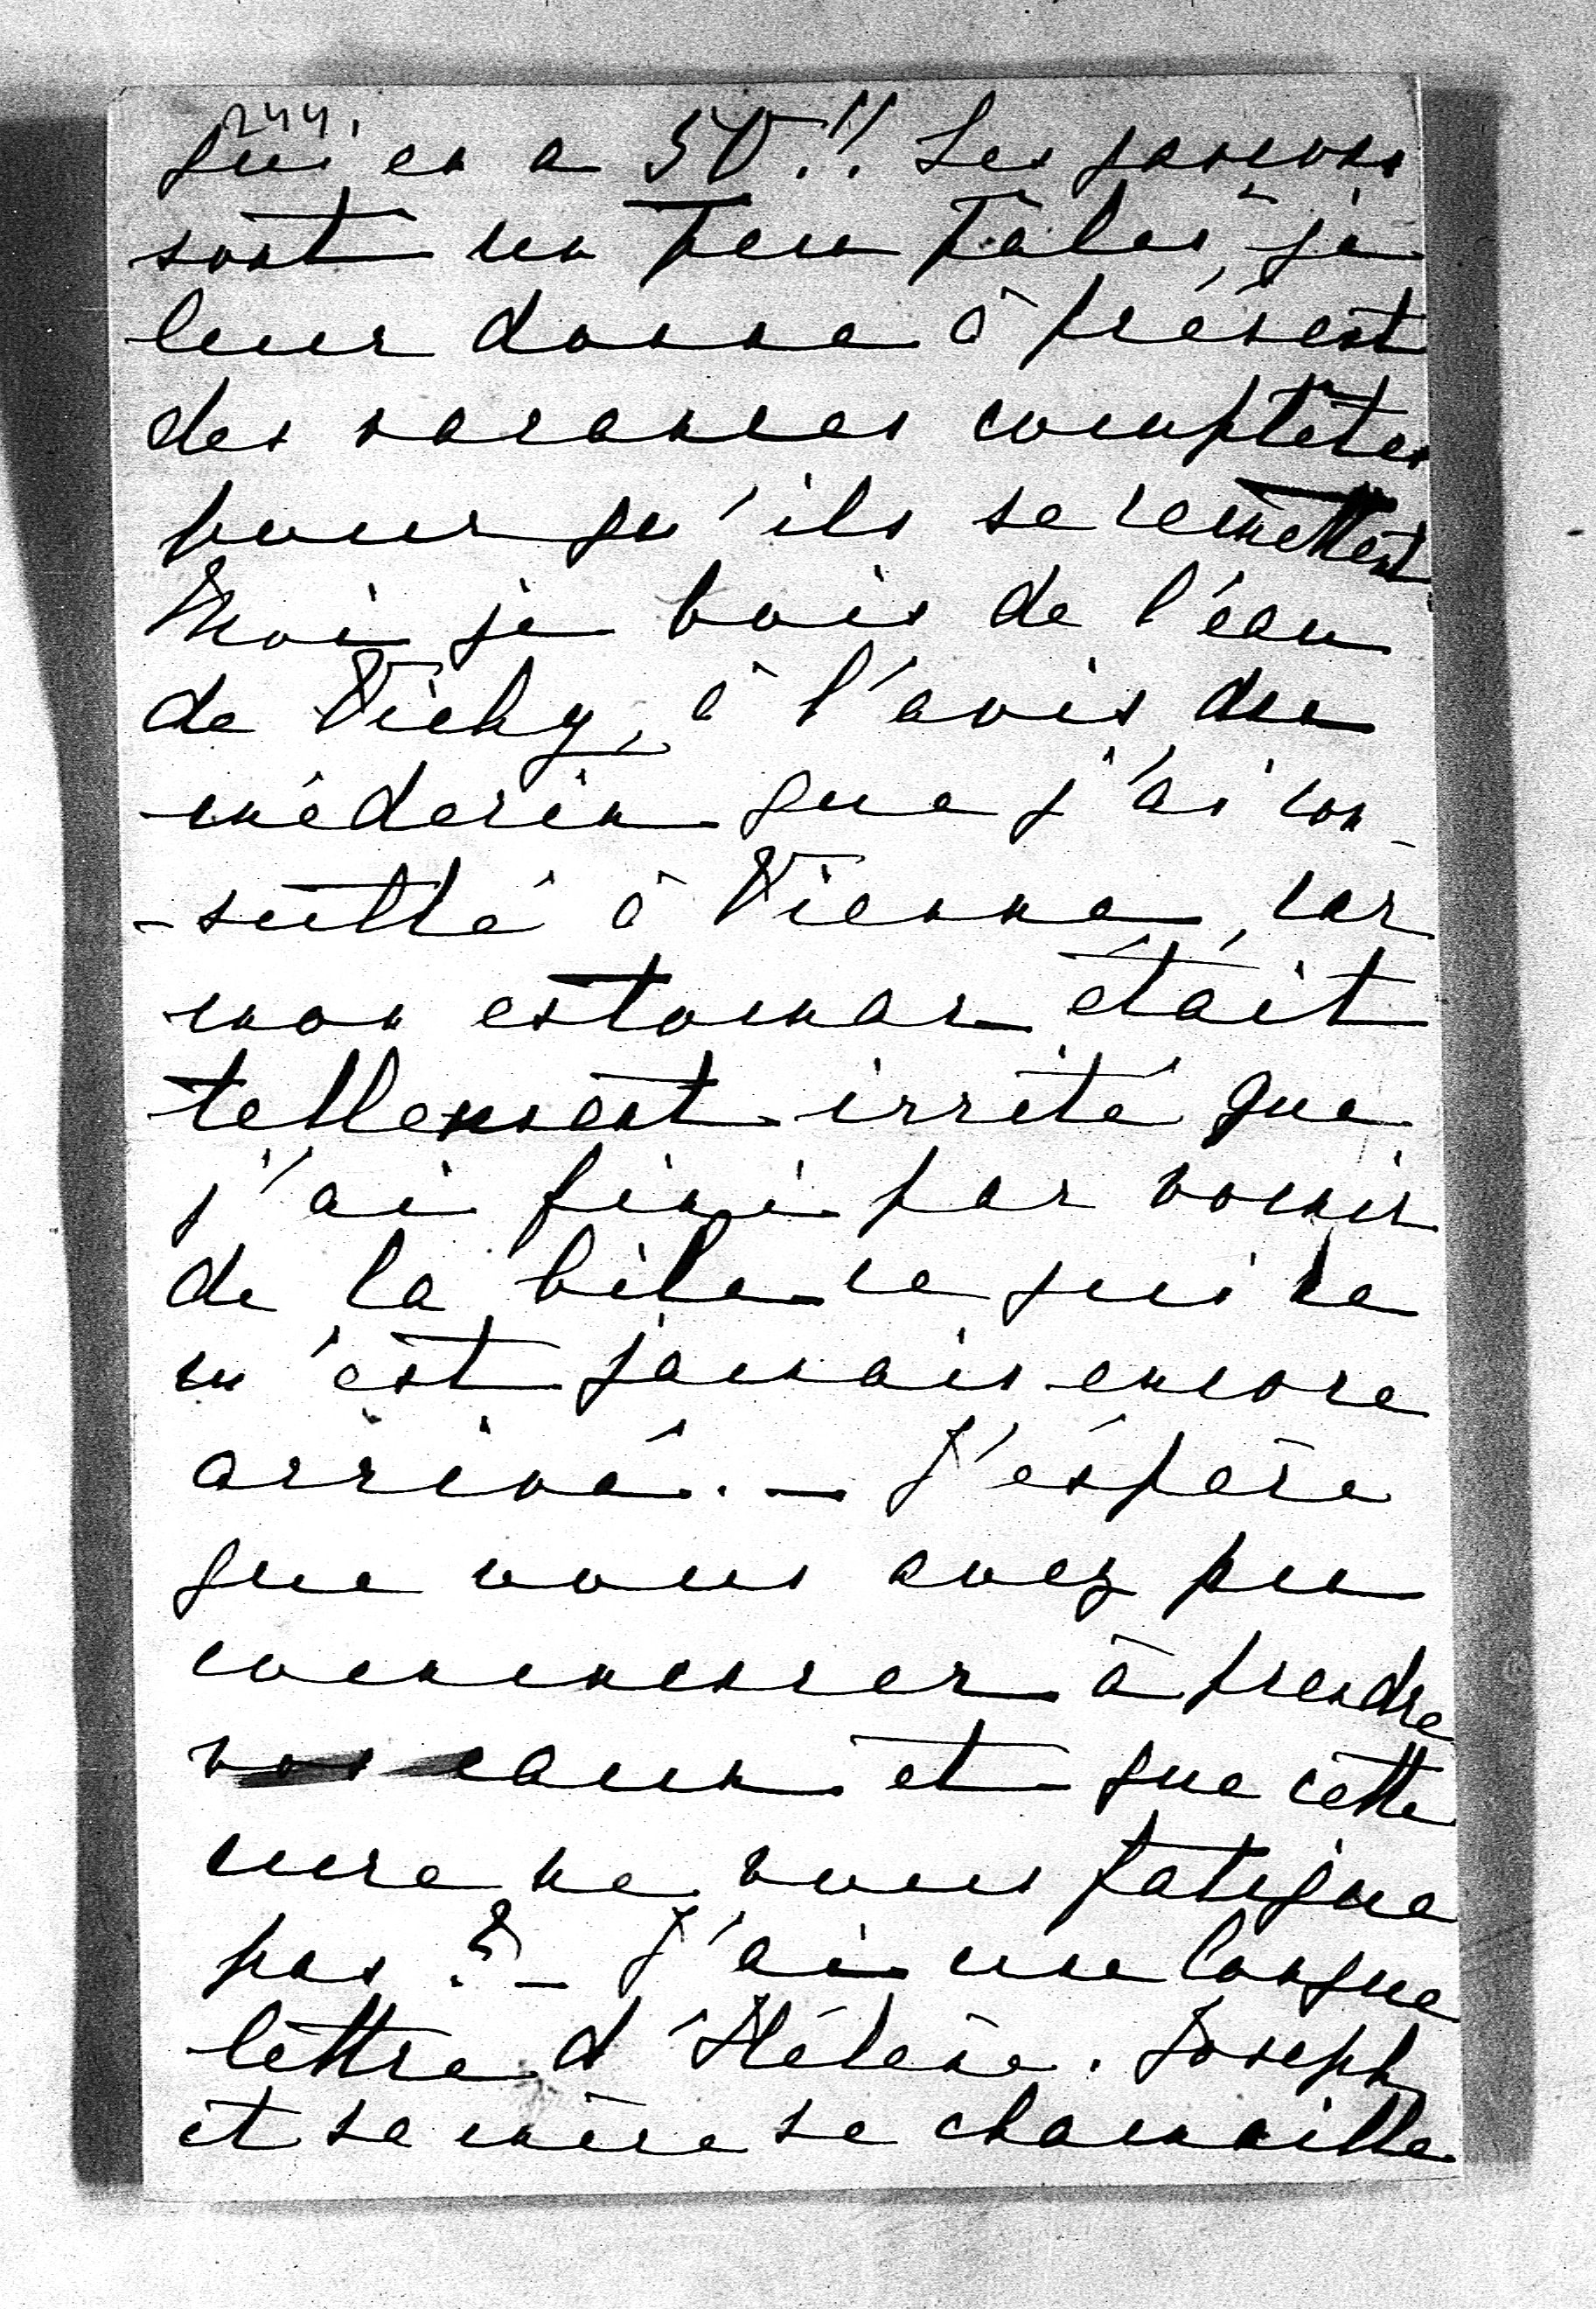 244.
qui en a 50!! Les garcons
sont un peu pâles, je
leur donne à présent
des vacances complètes
pour qu'ils se remettent
Moi je bois de l'eau
de Vichy, à l'avis du
médecin que j'ai con-
-sulté à Vienne, car
mon estomac était
tellement irrité que
j'ai fini par vomir
de la bile ce qui ne
m'est jamais encore
arrivé. — J'éspère
que vous avez pu
commencer à prendre
vos eaux et que cette
cure ne vous fatigue
pas? — J'ai une longue
lettre d'Hélène. Joseph
et sa mère se chamaille